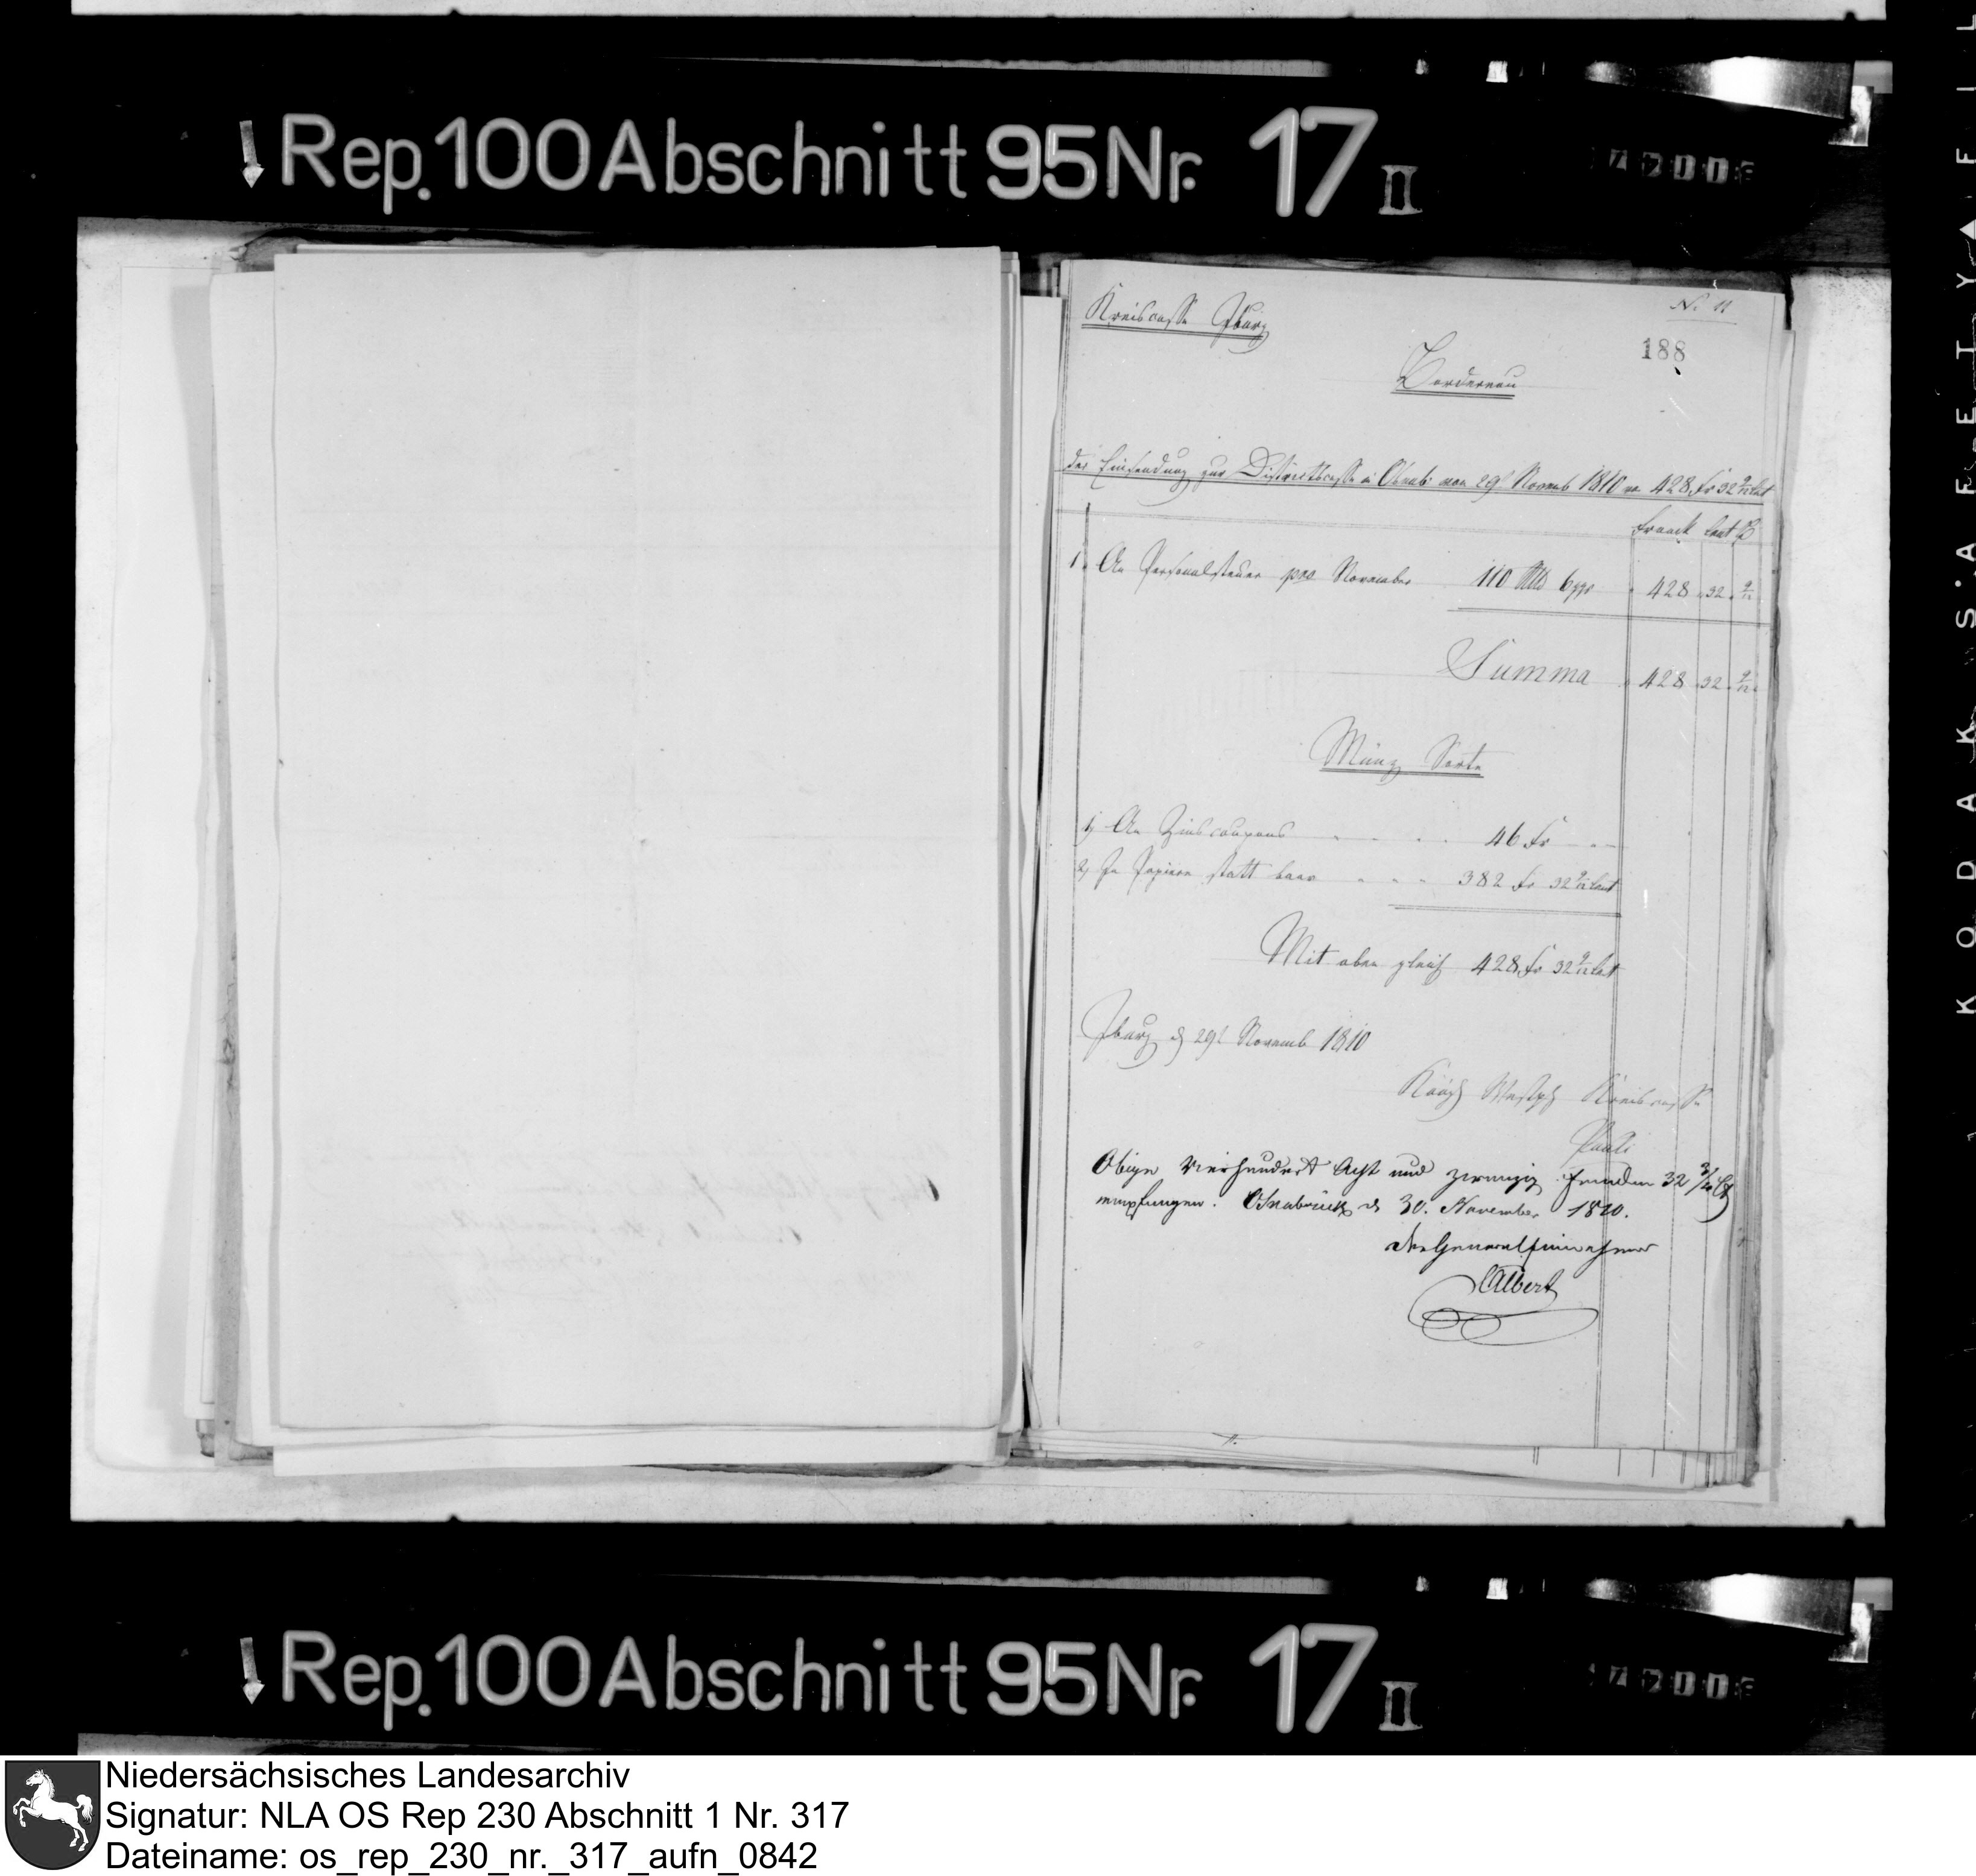 ↓ Rep. 100 Abschnitt 95 Nr. 17 II
Kreiscasse Iburg
N. 11
188
Bordereau
der Einsendung zur Districtscasse in Osnab: vom 29t Novemb 1810 von 428 Fr 32 9/12 Cent
Franck Cent
1. An Personalsteuer pro November 110 Rtlr 6 ggr 428 32 9/12
Summa 428 32 9/12
Münz Sorte
1, An Zins coupons 46 Fr
2, In Papieren statt baar 382 Fr 32 9/12 Cent
Mit oben gleich 428 Fr 32 9/12 Cent
Iburg d 29t Novemb 1810
Königl Westph Kreiscasse
Pauli
Obige Vierhundert Acht und zwanzig Franken 32
empfangen. Osnabrück d 30. November 1810.
der Generaleinnehmer
Albert
KODAK SAFETY FIL
↓ Rep. 100 Abschnitt 95 Nr. 17 II
Niedersächsisches Landesarchiv
Signatur: NLA OS Rep 230 Abschnitt 1 Nr. 317
Dateiname: os_rep_230_nr._317_aufn_0842